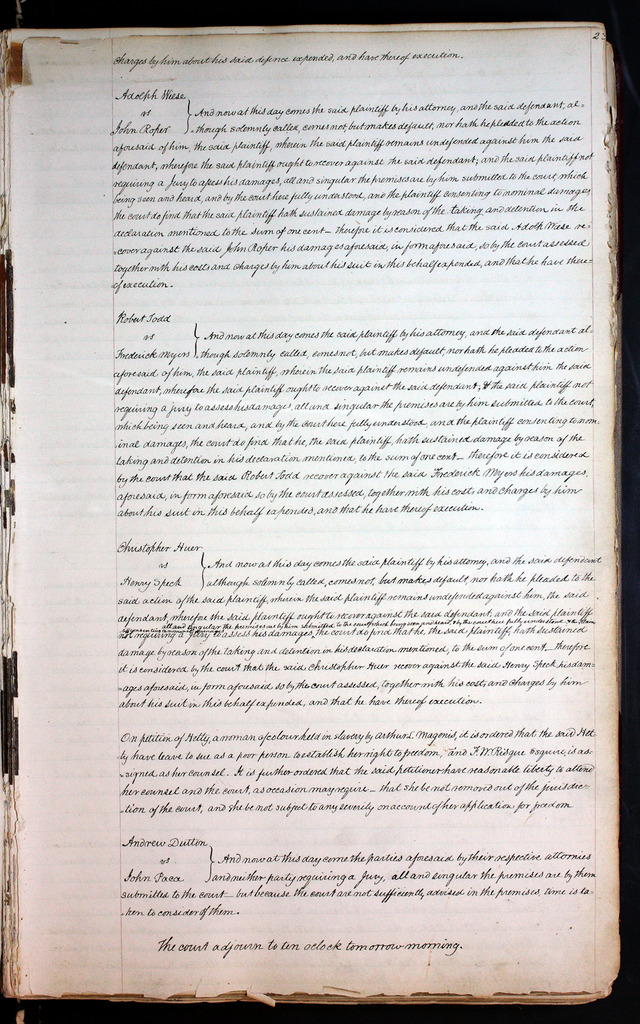 23
charges by him about his said defence expended, and have thereof execution.
Adolph Wiese
vs
John Roper
And now at this day comes the said plaintiff by his attorney, and the said defendant, al-
though solemnly called, comes not, but makes default, nor hath he pleaded to the action
aforesaid of him, the said plaintiff, wherein the said plaintiff remains undefended against him the said
defendant, wherefore the said plaintiff ought to recover against the said defendant, and the said plaintiff not
requiring a Jury to assess his damages, all and singular the premises are by him submitted to the court, which
being seen and heard, and by the court here fully understood, and the plaintiff consenting to nominal damages,
the court do find that the said plaintiff hath sustained damage by reason of the taking and detention in the
declaration mentioned to the sum of one cent — therefore it is considered that the said Adolph Wiese re-
cover against the said John Roper his damages aforesaid, in form aforesaid, so by the court assessed
together with his costs and charges by him about his suit in this behalf expended, and that he have there=
of execution.
Robert Todd
vs
Frederick Myers
And now at this day comes the said plaintiff by his attorney, and the said defendant al-
though solemnly called, comes not, but makes default, nor hath he pleaded to the action
aforesaid of him, the said plaintiff, wherein the said plaintiff remains undefended against him the said
defendant, wherefore the said plaintiff ought to recover against the said defendant; & the said plaintiff not
requiring a jury to assess his damages, all and singular the premises are by him submitted to the court,
which being seen and heard, and by the court here fully understood, and the plaintiff consenting to nom-
inal damages, the court do find that he, the said plaintiff, hath sustained damage by reason of the
taking and detention in his declaration mentioned, to the sum of one cent — therefore it is considered
by the court that the said Robert Todd recover against the said Frederick Myers his damages,
aforesaid, in form aforesaid so by the court assessed, together with his costs and charges by him
about his suit in this behalf expended, and that he have thereof execution.
Christopher Huer
vs
Henry Speck
And now at this day comes the said plaintiff by his attorney, and the said defendant
although solemnly called, comes not, but makes default, nor hath he pleaded to the
said action of the said plaintiff, wherein the said plaintiff remains undefended against him, the said
defendant, wherefore the said plaintiff ought to recover against the said defendant, and the said plaintiff
all and singular the premises are by him submitted to the court which being seen and heard, & by the court here fully understood, & the
not requiring a Jury to assess his damages, the court do find that he, the said plaintiff, hath sustained
damage by reason of the taking and detention in his declaration mentioned, to the sum of one cent — therefore
it is considered by the court that the said Christopher Huer recover against the said Henry Speck his dam-
ages aforesaid, in form aforesaid, so by the court assessed, together with his costs and charges by him
about his suit in this behalf expended, and that he have thereof execution.
On petition of Helly, a woman of colour held in slavery by Arthur L Magenis, it is ordered that the said Hel-
ly have leave to sue as a poor person to establish her right to freedom, and F. W. Risque Esquire, is as-
signed as her counsel. It is further ordered that the said petitioner have reasonable liberty to attend
her counsel and the court, as occasion may require — that she be not removed out of the jurisdic-
tion of the court, and she be not subject to any severity on account of her application for freedom
Andrew Dutton
vs
John Paca
And now at this day come the parties aforesaid by their respective attornies
and neither party requiring a Jury, all and singular the premises are by them
submitted to the court — but because the court are not sufficiently advised in the premises, time is ta-
ken to consider of them.
The court adjourn to ten oclock tomorrow morning.